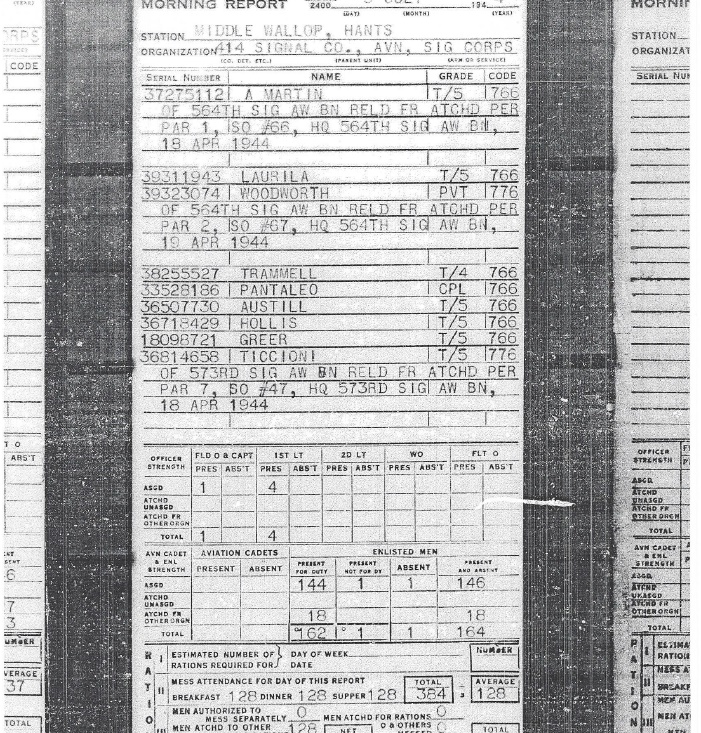 MORNING REPORT 2400 194
(DAY) (MONTH) (YEAR)
STATION MIDDLE WALLOP, HANTS
ORGANIZATION 414 SIGNAL CO., AVN, SIG CORPS
(CO. DET, ETC.) (PARENT UNIT) (ARM OR SERVICE)
SERIAL NUMBER NAME GRADE CODE
37275112 A MARTIN T/5 766
OF 564TH SIG AW BN RELD FR ATCHD PER
PAR 1, SO #66, HQ 564TH SIG AW BN,
18 APR 1944
39311943 LAURILA T/5 766
39323074 WOODWORTH PVT 776
OF 564TH SIG AW BN RELD FR ATCHD PER
PAR 2, SO #67, HQ 564TH SIG AW BN,
19 APR 1944
38255527 TRAMMELL T/4 766
33528186 PANTALEO CPL 766
36507730 AUSTILL T/5 766
36718429 HOLLIS T/5 766
18098721 GREER T/5 766
36814658 TICCIONI T/5 776
OF 573RD SIG AW BN RELD FR ATCHD PER
PAR 7, SO #47, HQ 573RD SIG AW BN,
18 APR 1944
OFFICER STRENGTH FLD O & CAPT 1ST LT 2D LT WO FLT O
PRES ABS'T PRES ABS'T PRES ABS'T PRES ABS'T PRES ABS'T
ASGD 1 4
ATCHD UNASGD
ATCHD FR OTHER ORGN
TOTAL 1 4
AVN CADET & ENL STRENGTH AVIATION CADETS ENLISTED MEN
PRESENT ABSENT PRESENT FOR DUTY PRESENT NOT FOR DY ABSENT PRESENT AND ABSENT
ASGD 144 1 1 146
ATCHD UNASGD
ATCHD FR OTHER ORGN 18 18
TOTAL 162 1 1 164
RATIO
I ESTIMATED NUMBER OF RATIONS REQUIRED FOR } DAY OF WEEK DATE NUMBER
II MESS ATTENDANCE FOR DAY OF THIS REPORT TOTAL AVERAGE
BREAKFAST 128 DINNER 128 SUPPER 128 384 3 128
MEN AUTHORIZED TO MESS SEPARATELY 0 MEN ATCHD FOR RATIONS 0
III MEN ATCHD TO OTHER 128 NET O & OTHERS 0 TOTAL